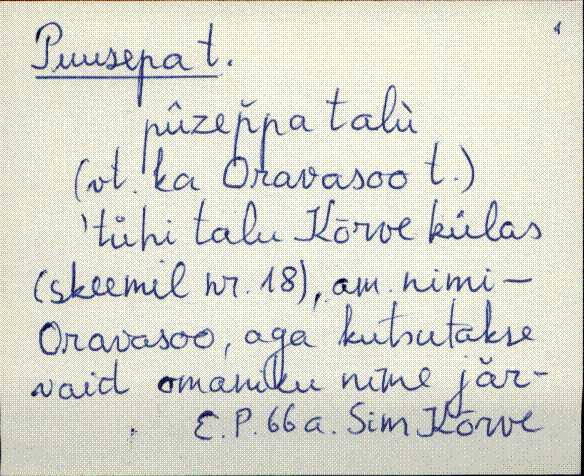 Puusepa t.
pûzep̆pa talù
(vt. ka Oravasoo t.)
'tühi talu Kõrve külas
(skeemil nr. 18), am. nimi –
Oravasoo, aga kutsutakse
vaid omaniku nime jär-
E.P. 66 a. Sim Kõrve